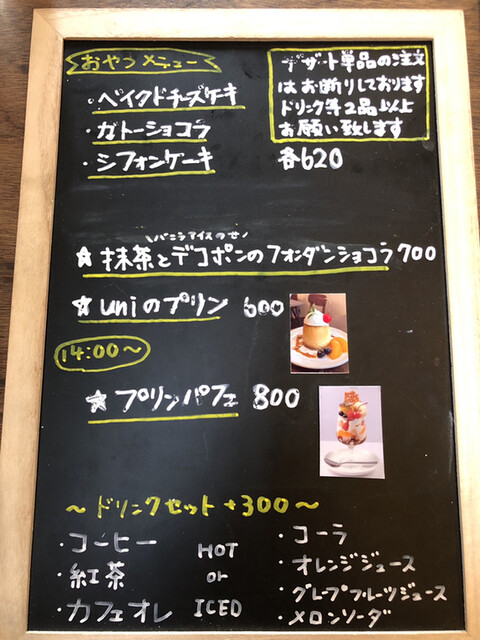 おやつメニュー
・ベイクドチーズケーキ
・ガトーショコラ
・シフォンケーキ 各620
デザート単品の注文
はお断りしております
ドリンク等2品以上
お願い致します
\バニラアイスのせ/
☆ 抹茶とデコポンのフォンダンショコラ 700
☆ uniのプリン 600
14:00～
☆ プリンパフェ 800
～ドリンクセット +300～
・コーヒー
・紅茶
・カフェオレ
HOT
or
ICED
・コーラ
・オレンジジュース
・グレープフルーツジュース
・メロンソーダ